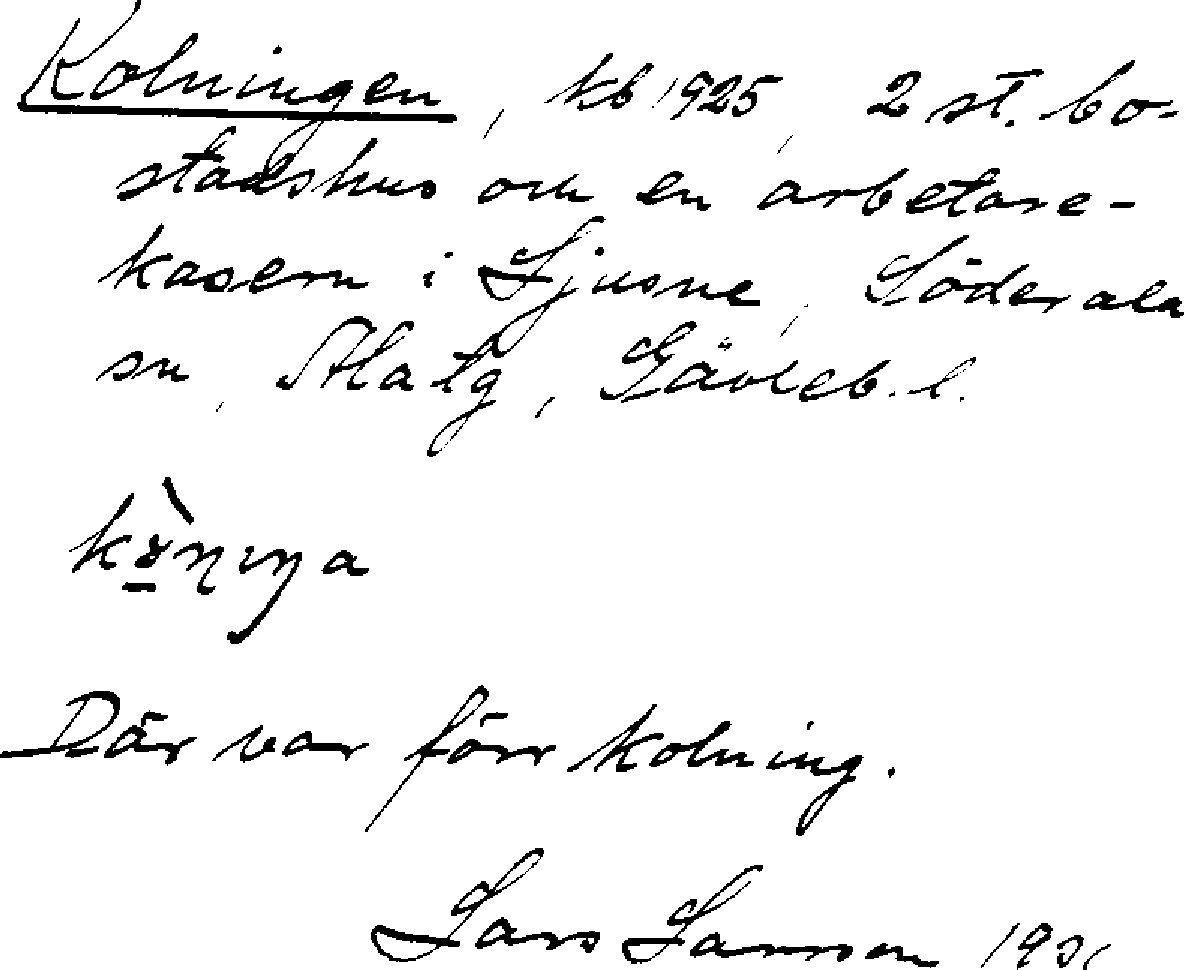 Kolningen, kb 1925, 2 st. bo-
stadshus och en arbetare-
kasern i Ljusne, Söderala
sn, Ala tg, Gävleb. l.
Där var förr kolning.
Lars Larsson